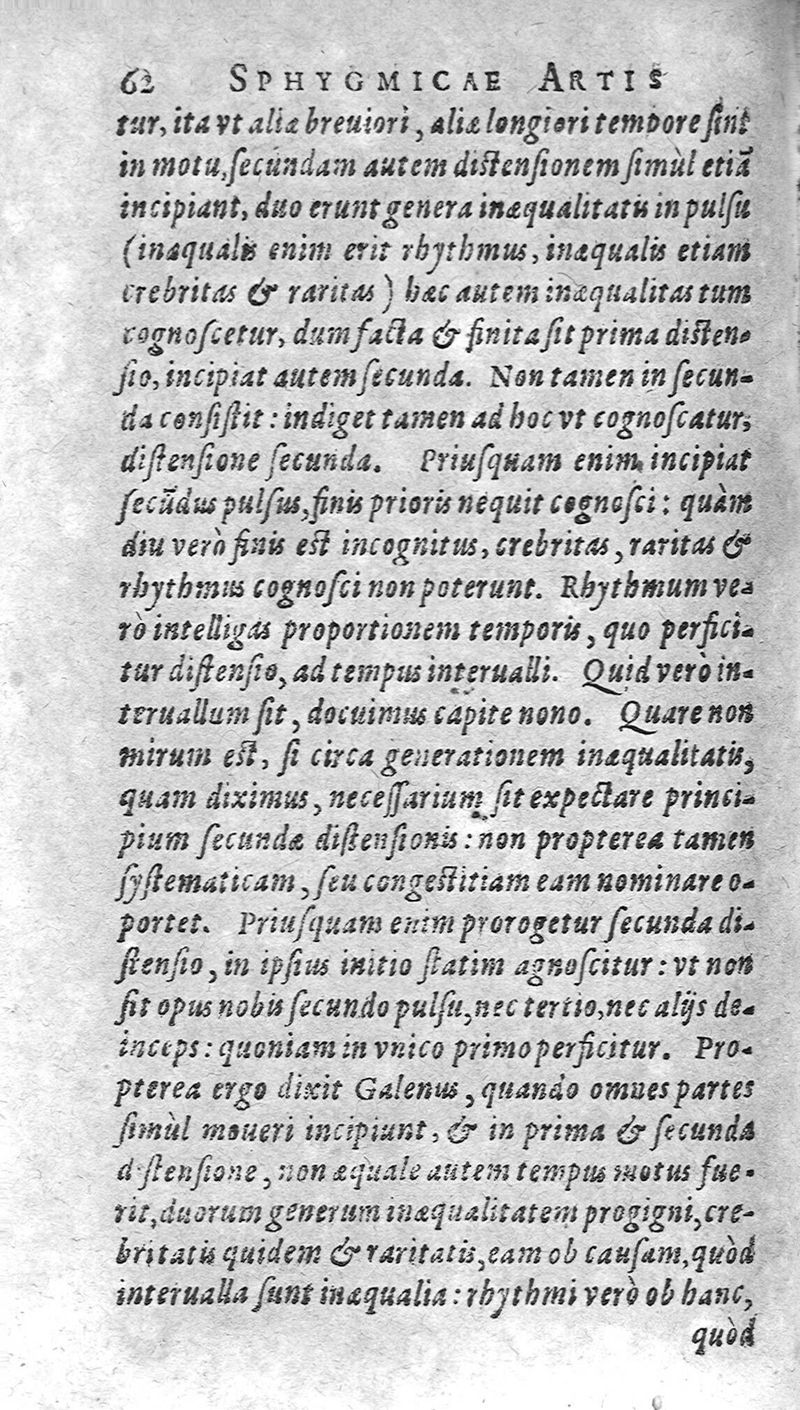 62 SPHYGMICAE ARTIS
tur, ita vt aliæ breuiori, aliæ longiori tempore ſint
in motu, ſecundam autem diſtenſionem ſimùl etiã
incipiant, duo erunt genera inæqualitatis in pulſu
(inæqualis enim erit rhythmus, inæqualis etiam
crebritas & raritas) hæc autem inæqualitas tum
cognoſcetur, dum facta & finita ſit prima diſten-
ſio, incipiat autem ſecunda. Non tamen in ſecun-
da conſiſtit: indiget tamen ad hoc vt cognoſcatur,
diſtenſione ſecunda. Priuſquam enim incipiat
ſecũdus pulſus, finis prioris nequit cognoſci: quàm
diu verò finis eſt incognitus, crebritas, raritas &
rhythmus cognoſci non poterunt. Rhythmum ve-
rò intelligas proportionem temporis, quo perfici-
tur diſtenſio, ad tempus interualli. Quid verò in-
teruallum ſit, docuimus capite nono. Quare non
mirum eſt, ſi circa generationem inæqualitatis,
quam diximus, neceſſarium ſit expectare princi-
pium ſecundæ diſtenſionis: non propterea tamen
ſyſtematicam, ſeu congeſtitiam eam nominare o-
portet. Priuſquam enim prorogetur ſecunda di-
ſtenſio, in ipſius initio ſtatim agnoſcitur: vt non
ſit opus nobis ſecundo pulſu, nec tertio, nec alijs de-
inceps: quoniam in vnico primo perficitur. Pro-
pterea ergo dixit Galenus, quando omnes partes
ſimùl moueri incipiunt, & in prima & ſecunda
diſtenſione, non æquale autem tempus motus fue-
rit, duorum generum inæqualitatem progigni, cre-
britatis quidem & raritatis, eam ob cauſam, quòd
interualla ſunt inæqualia: rhythmi verò ob hanc,
quòd